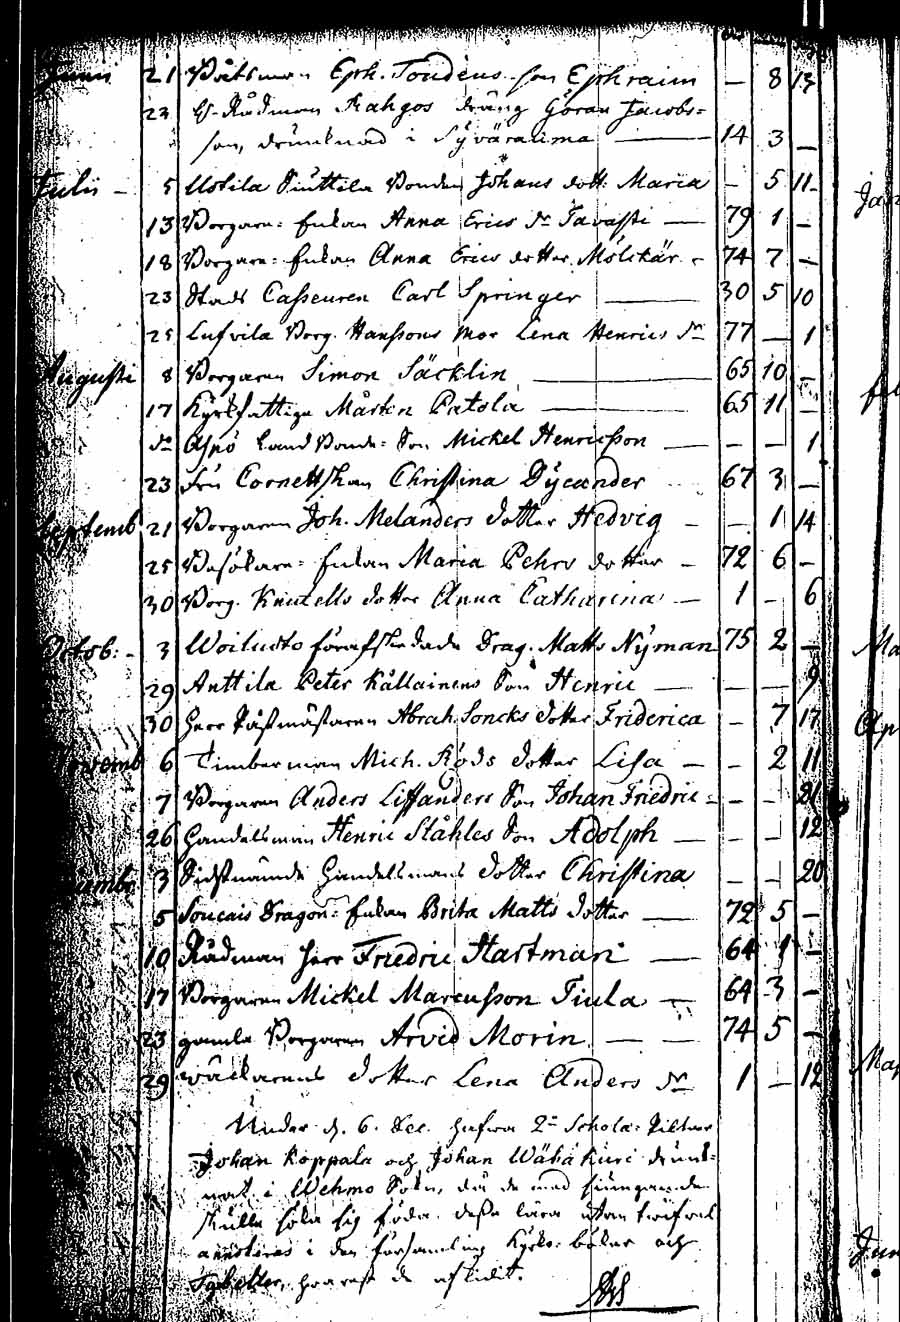 Junii 21 Båtsman Eph. Tondens son Ephraim — 8 13
23 Rådman Kahgos dräng Göran Jacobs=
son, drunknad i Syväraŭma — 14 3 —
Julii — 5 Uotila Siuttila Bonden Johans dott. Maria — 5 11
13 Borgare= Enkan Anna Erics dr Tavasti — 79 1 —
18 Borgare= Enkan Anna Erics dotter Mölskär — 74 7 —
23 Stads Casseuren Carl Springer — 30 5 10
25 Lufvila Borg. Hanssons mor Lena Henrics dr 77 — 1
Augusti 8 Borgaren Simon Säcklin — 65 10 —
17 Kyrkfattige Mårten Patola — 65 11 —
do Land Bonde= Son Mickel Henricsson — — — 1
23 Fru Cornettskan Christina Dycander 67 3 —
Septemb 21 Borgaren Joh. Melanders dotter Hedvig — — 1 14
25 Besökare= Enkan Maria Pehrs dotter — 72 6 —
30 Borg. Knutells dotter Anna Catharina — 1 — 6
Octob: — 3 Woiluoto förafskedade Drag. Matts Nyman 75 2 —
29 Anttila Peter Kållainens Son Henric — — — 9
30 Herr Påstmästaren Abrah. Soncks dotter Friderica — 7 17
Novemb 6 Timberman Mich. Röds dotter Lisa — — 2 11
7 Borgaren Anders Lissanders Son Johan Friedric= — — 21
26 Handelsman Henric Ståhles Son Adolph — — — 12
Decembr 3 Sidstnämde Handelsmans dotter Christina — — 20
5 Soucais Dragon= Enkan Brita Matts dotter — 72 5 —
10 Rådman Herr Friedric Hartman — 64 1 —
17 Borgaren Mickel Marcusson Tiula — 64 3 —
23 gamla Borgaren Arvid Morin — — 74 5 —
29 Wäckarens dotter Lena Anders dr 1 — 12
Under d. 6. Dec. hafva 2ne Schola= Piltar
Johan Koppala och Johan Wähä Kuri drunk=
nat i Wehmo Sokn, då de med siungande
skulle söka sig föda. desse lära utan tvifvel
annoteras i den församlings Kyrko= böker och
Tabeller, hvarest de aflidit.